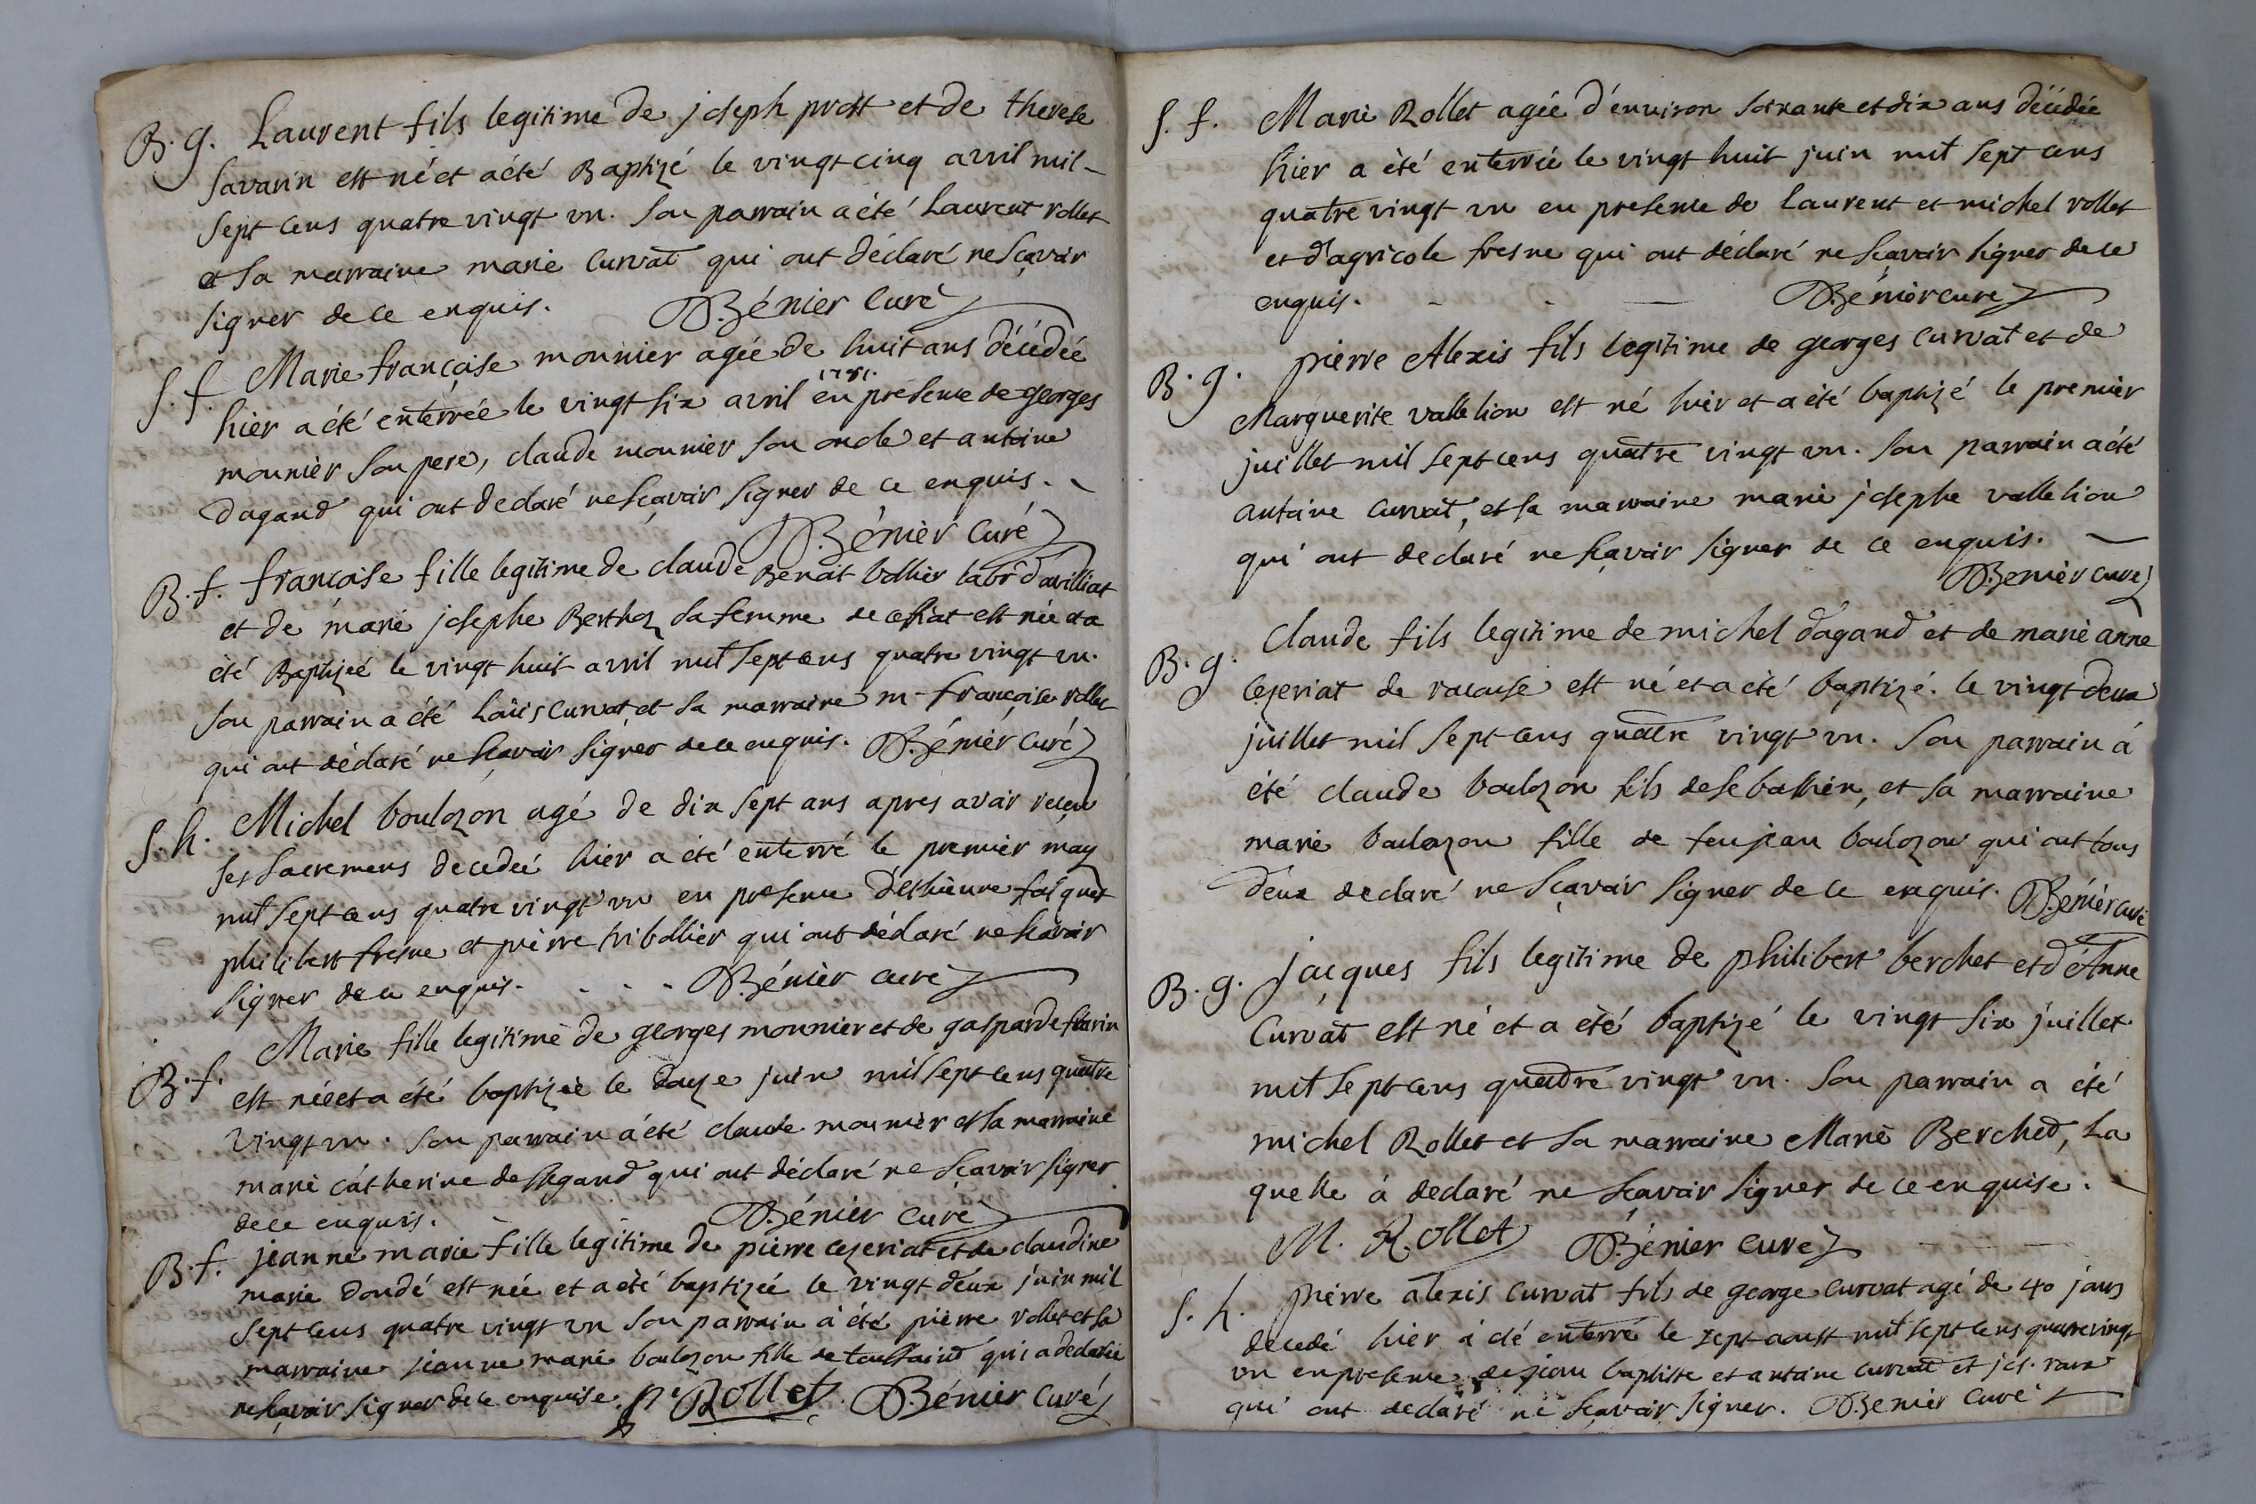 B. g. Laurent fils legitime de joseph prost et de therese
savarin est né et a été Baptizé le vingt cinq avril mil
sept cens quatre vingt un. son parrain a été Laurent rollet
et sa marraine marie curvat qui ont déclaré ne sçavoir
signer de ce enquis. Bénier curé
S. f. Marie françoise mounier agée de huit ans décédée
hier a été enterrée le vingt six avril 1781. en presence de georges
mounier son pere, claude mounier son oncle et antoine
dagand qui ont declaré ne sçavoir signer de ce enquis.
Bénier curé
B. f. françoise fille legitime de claude Benoit bollier labr. d'avilliat
et de marie josephe Berthoz sa femme de est née et a
été Baptizée le vingt huit avril mil sept cens quatre vingt un.
son parrain a été Loüis curvat, et sa marraine m- françoise rollet
qui ont déclaré ne sçavoir signer de ce enquis. Bénier curé
S. h. Michel boulozon agé de dix sept ans apres avoir reçeu
ses sacremens decedeé hier a été enterré le premier may
mil sept cens quatre vingt un en presence d'esthienne
philibert fresne et pierre tribollier qui ont déclaré ne scavoir
signer de ce enquis. Bénier curé
Marie fille legitime de georges mounier et de gasparde
B. f. est née et a été baptizée le douze juin mil sept cens quatre
vingt un. son parrain a été claude mounier et sa marraine
marie catherine de qui ont déclaré ne sçavoir signer
de ce enquis. Bénier curé
B. f. jeanne marie fille legitime de pierre cezeriat et de claudine
marie dondé est née et a été baptizée le vingt deux juin mil
sept cens quatre vingt un son parrain à été pierre rollet et sa
marraine jeanne marie boulozon fille de toussaint qui a declarée
ne sçavoir signer de ce enquise. pe Rollet. Bénier curé
S. f. Marie Rollet agée d'environ soixante et dix ans décédée
hier a été enterrée le vingt huit juin mil sept cens
quatre vingt un en presence de laurent et michel rollet
et d'agricole fresne qui ont déclaré ne sçavoir signer de ce
enquis. Bénier curé
B. g. pierre Alexis fils legitime de georges curvat et de
Marguerite vallelion est né hier et a été baptizé le premier
juillet mil sept cens quatre vingt un. son parrain a été
antoine curvat, et sa marraine marie josephe vallelion
qui ont declaré ne sçavoir signer de ce enquis.
Benier curé
Claude fils legitime de michel dagand et de marie anne
B. g. cezeriat de racouse est né et a été baptizé. le vingt deux
juillet mil sept cens quatre vingt un. son parrain à
été claude boulozon fils de sebastien, et sa marraine
marie boulozon fille de feu jean boulozon qui ont tous
deux declaré ne sçavoir signer de ce enquis. Bénier curé
B. g. jacques fils legitime de philibert berchet et d'Anne
Curvat est né et a été baptizé le vingt six juillet
mil sept cens quatre vingt un. son parrain a été
michel Rollet et sa marraine Marie Berched, la
quelle à declaré ne sçavoir signer de ce enquise.
M. Rollet Bénier curé
S. h. pierre alexis curvat fils de george curvat agé de 40 jours
decedé hier à été enterré le sept aoust mil sept cens quatre vingt
un en presence de jean baptiste et antoine curvat et jos.
qui ont declaré ne sçavoir signer. Benier curé